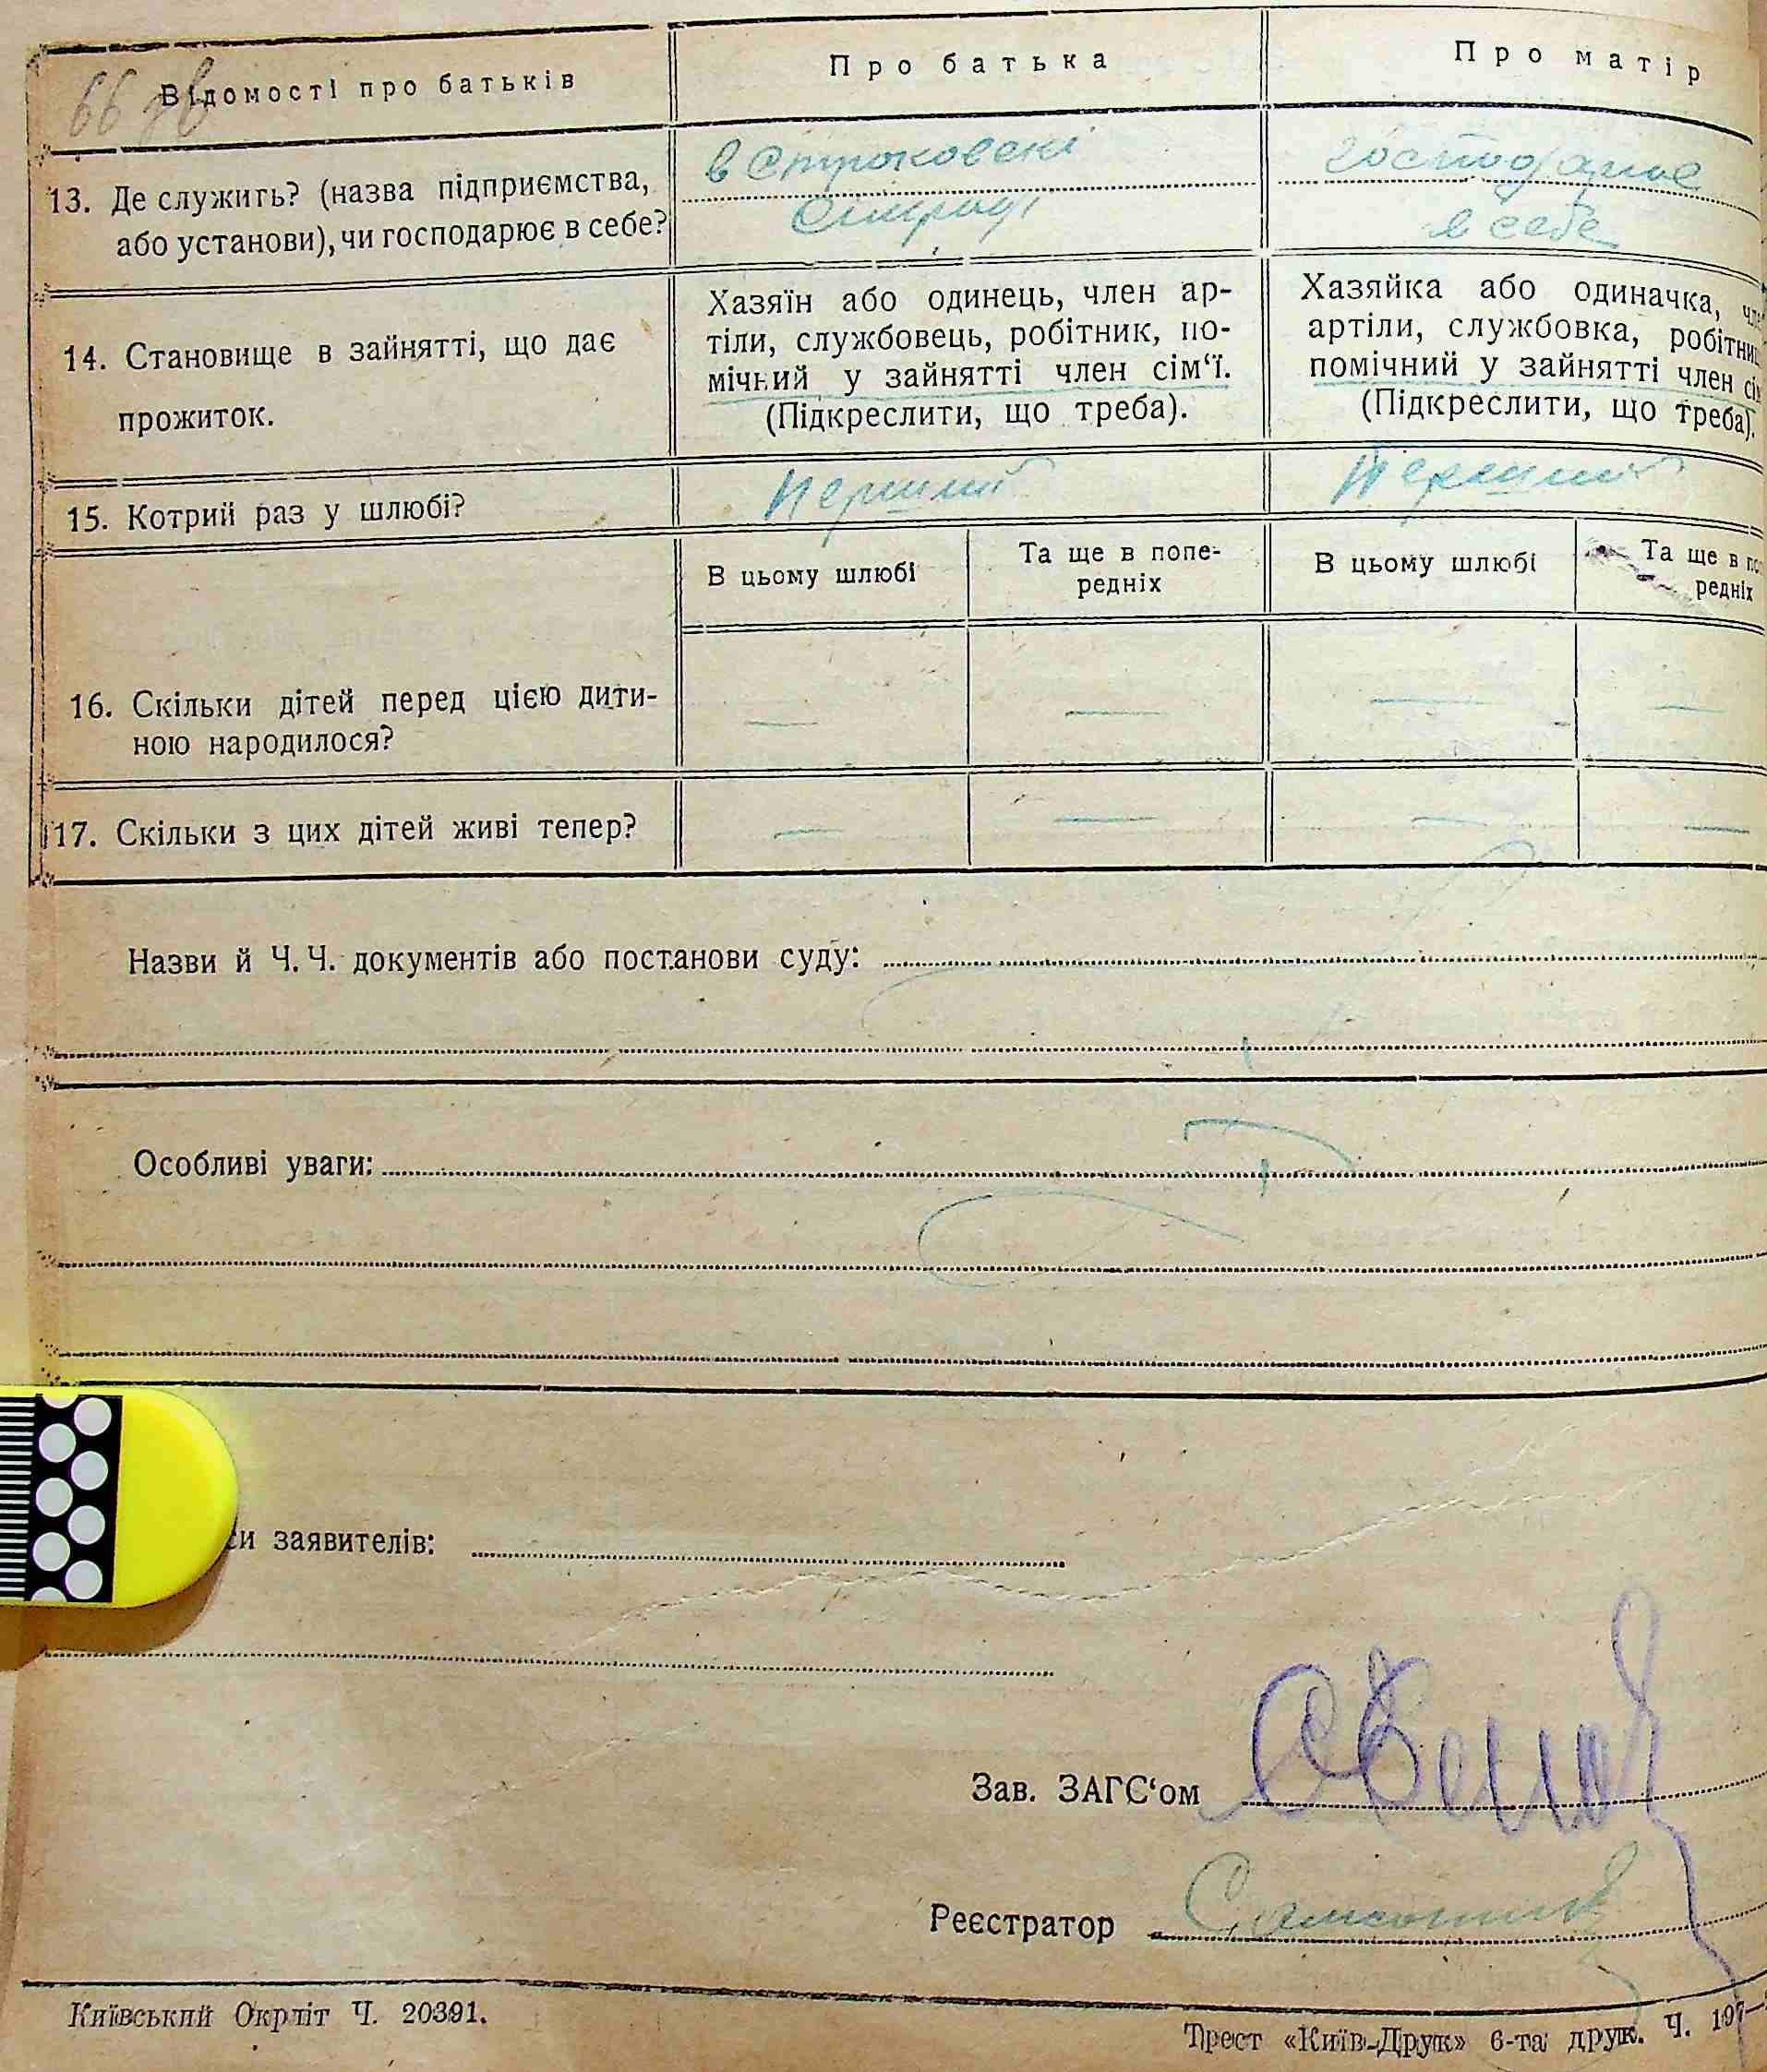 66 зв
Відомості про батьків
Про батька
Про матір
13. Де служить? (назва підприємства,
або установи), чи господарює в себе?
в
господарює
в себе
14. Становище в зайнятті, що дає
прожиток.
Хазяїн або одинець, член ар-
тіли, службовець, робітник, по-
мічний у зайнятті член сім‘ї.
(Підкреслити, що треба).
Хазяйка або одиначка, чле
артіли, службовка, робітниц
помічний у зайнятті член сім
(Підкреслити, що треба).
15. Котрий раз у шлюбі?
Перший
Перший
В цьому шлюбі
Та ще в попе-
редніх
В цьому шлюбі
Та ще в поп
редніх
16. Скільки дітей перед цією дити-
ною народилося?
— — — —
17. Скільки з цих дітей живі тепер?
— — — —
Назви й Ч.Ч. документів або постанови суду:
Особливі уваги:
си заявителів:
Зав. ЗАГС‘ом
Реєстратор
Київський Окрліт Ч. 20391.
Трест «Київ-Друк» 6-та друк. Ч. 197—